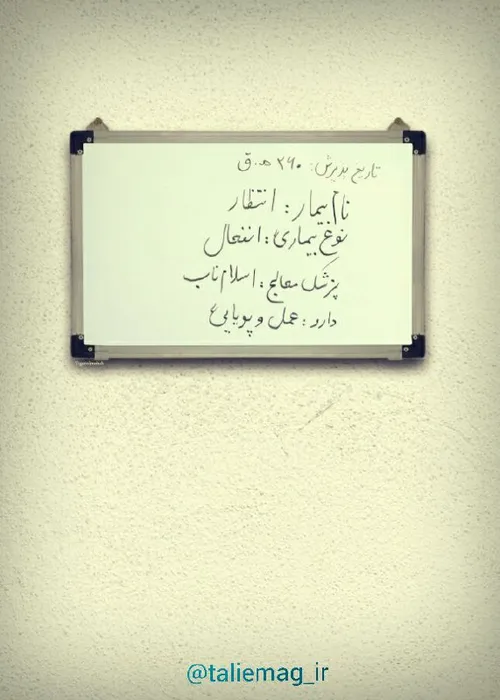 تاریخ پذیرش: ۲۶۰ ه.ق
نام بیمار: انتظار
نوع بیماری: انفعال
پزشک معالج: اسلام ناب
دارو: عمل و پویایی
@taliemag_ir